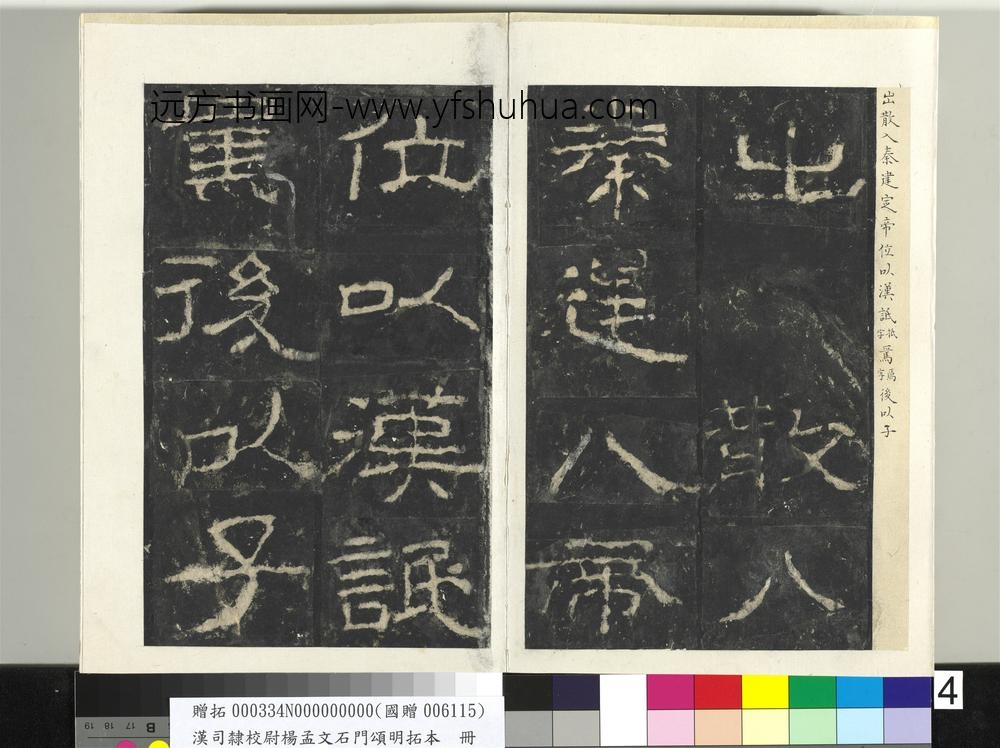 远方书画网-www.yfshuhua.com
出散入秦建定帝位以漢詆抵字焉焉字後以子
出散入
秦建定帝
位以漢詆
焉後以子
4
贈拓 000334N000000000(國贈 006115)
漢司隸校尉楊孟文石門頌明拓本 冊